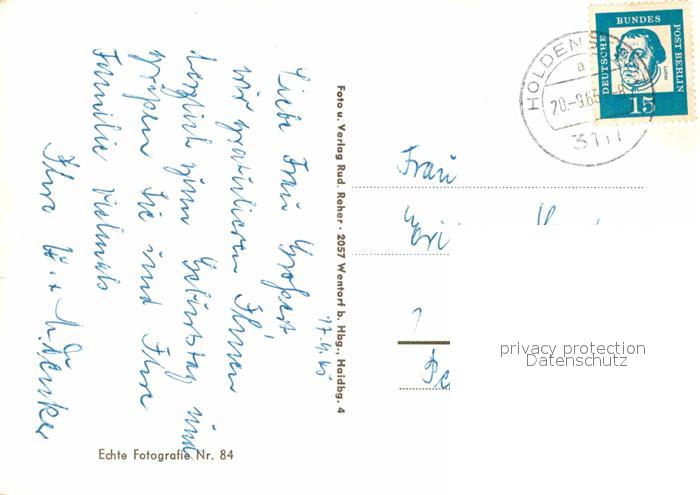 17.9.65
Liebe Frau
wir gratulieren Ihnen
herzlich zum Geburtstag und
grüßen Sie und Ihre
Familie vielmals
Ihre
Foto u. Verlag Rud. Reher · 2057 Wentorf b. Hbg., Haidbg. 4
Echte Fotografie Nr. 84
DEUTSCHE BUNDES POST BERLIN
Luther
15
HOLDEN
a
20.-9.65
3111
Frau
privacy protection
Datenschutz